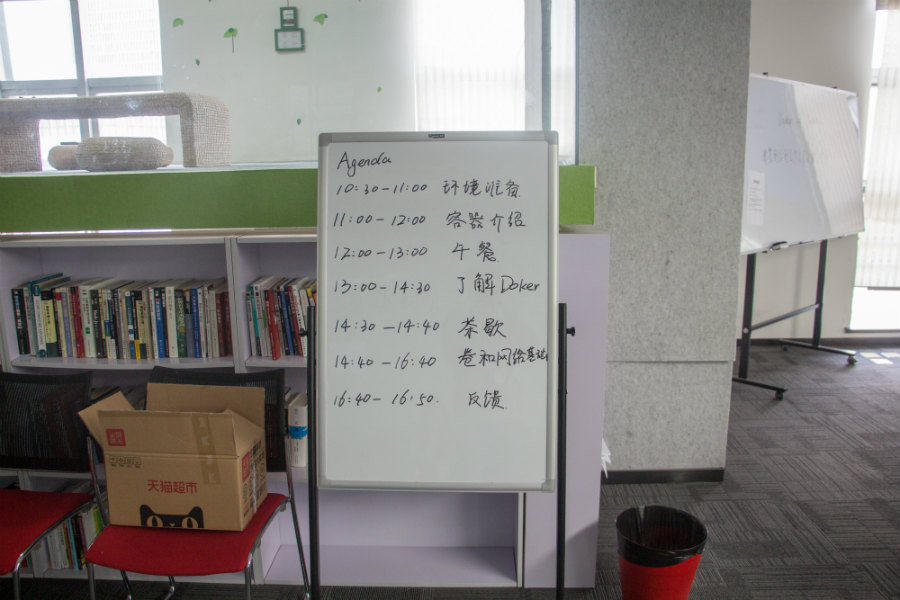 Agenda
10:30-11:00 环境准备
11:00-12:00 容器介绍
12:00-13:00 午餐
13:00-14:30 了解Doker
14:30-14:40 茶歇
14:40-16:40 卷和网络基础
16:40-16:50. 反馈.
天猫超市